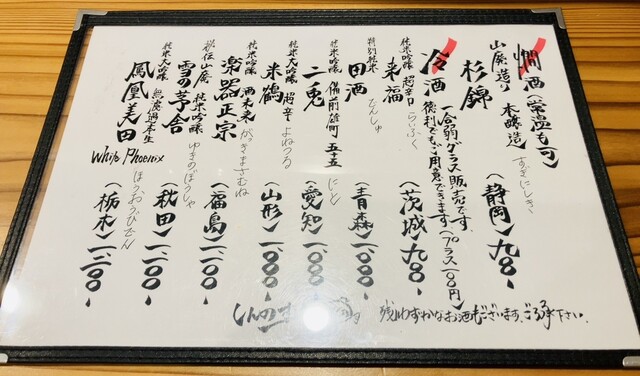 燗酒(常温も可)
山廃造り 本醸造
杉錦 すぎにしき (静岡) 九八〇
冷酒 一合弱グラス販売です。
徳利でもご用意できます。(プラス一〇〇円)
純米吟醸 超辛口
来福 らいふく (茨城) 九八〇
特別純米
田酒 でんしゅ (青森) 一、〇〇〇
純米吟醸 備前雄町 五十五
二兎 にと (愛知) 一、〇〇〇
純米大吟醸 超辛
米鶴 よねつる (山形) 一、〇〇〇
純米吟醸 酒未来
楽器正宗 がっきまさむね (福島) 一、一〇〇
秘伝山廃 純米吟醸
雪の茅舎 ゆきのぼうしゃ (秋田) 一、二〇〇
純米大吟醸 無濾過本生
鳳凰美田 White Phoenix ほうおうびでん (栃木) 一、二〇〇
残りわずかなお酒もございます。ご了承下さい。